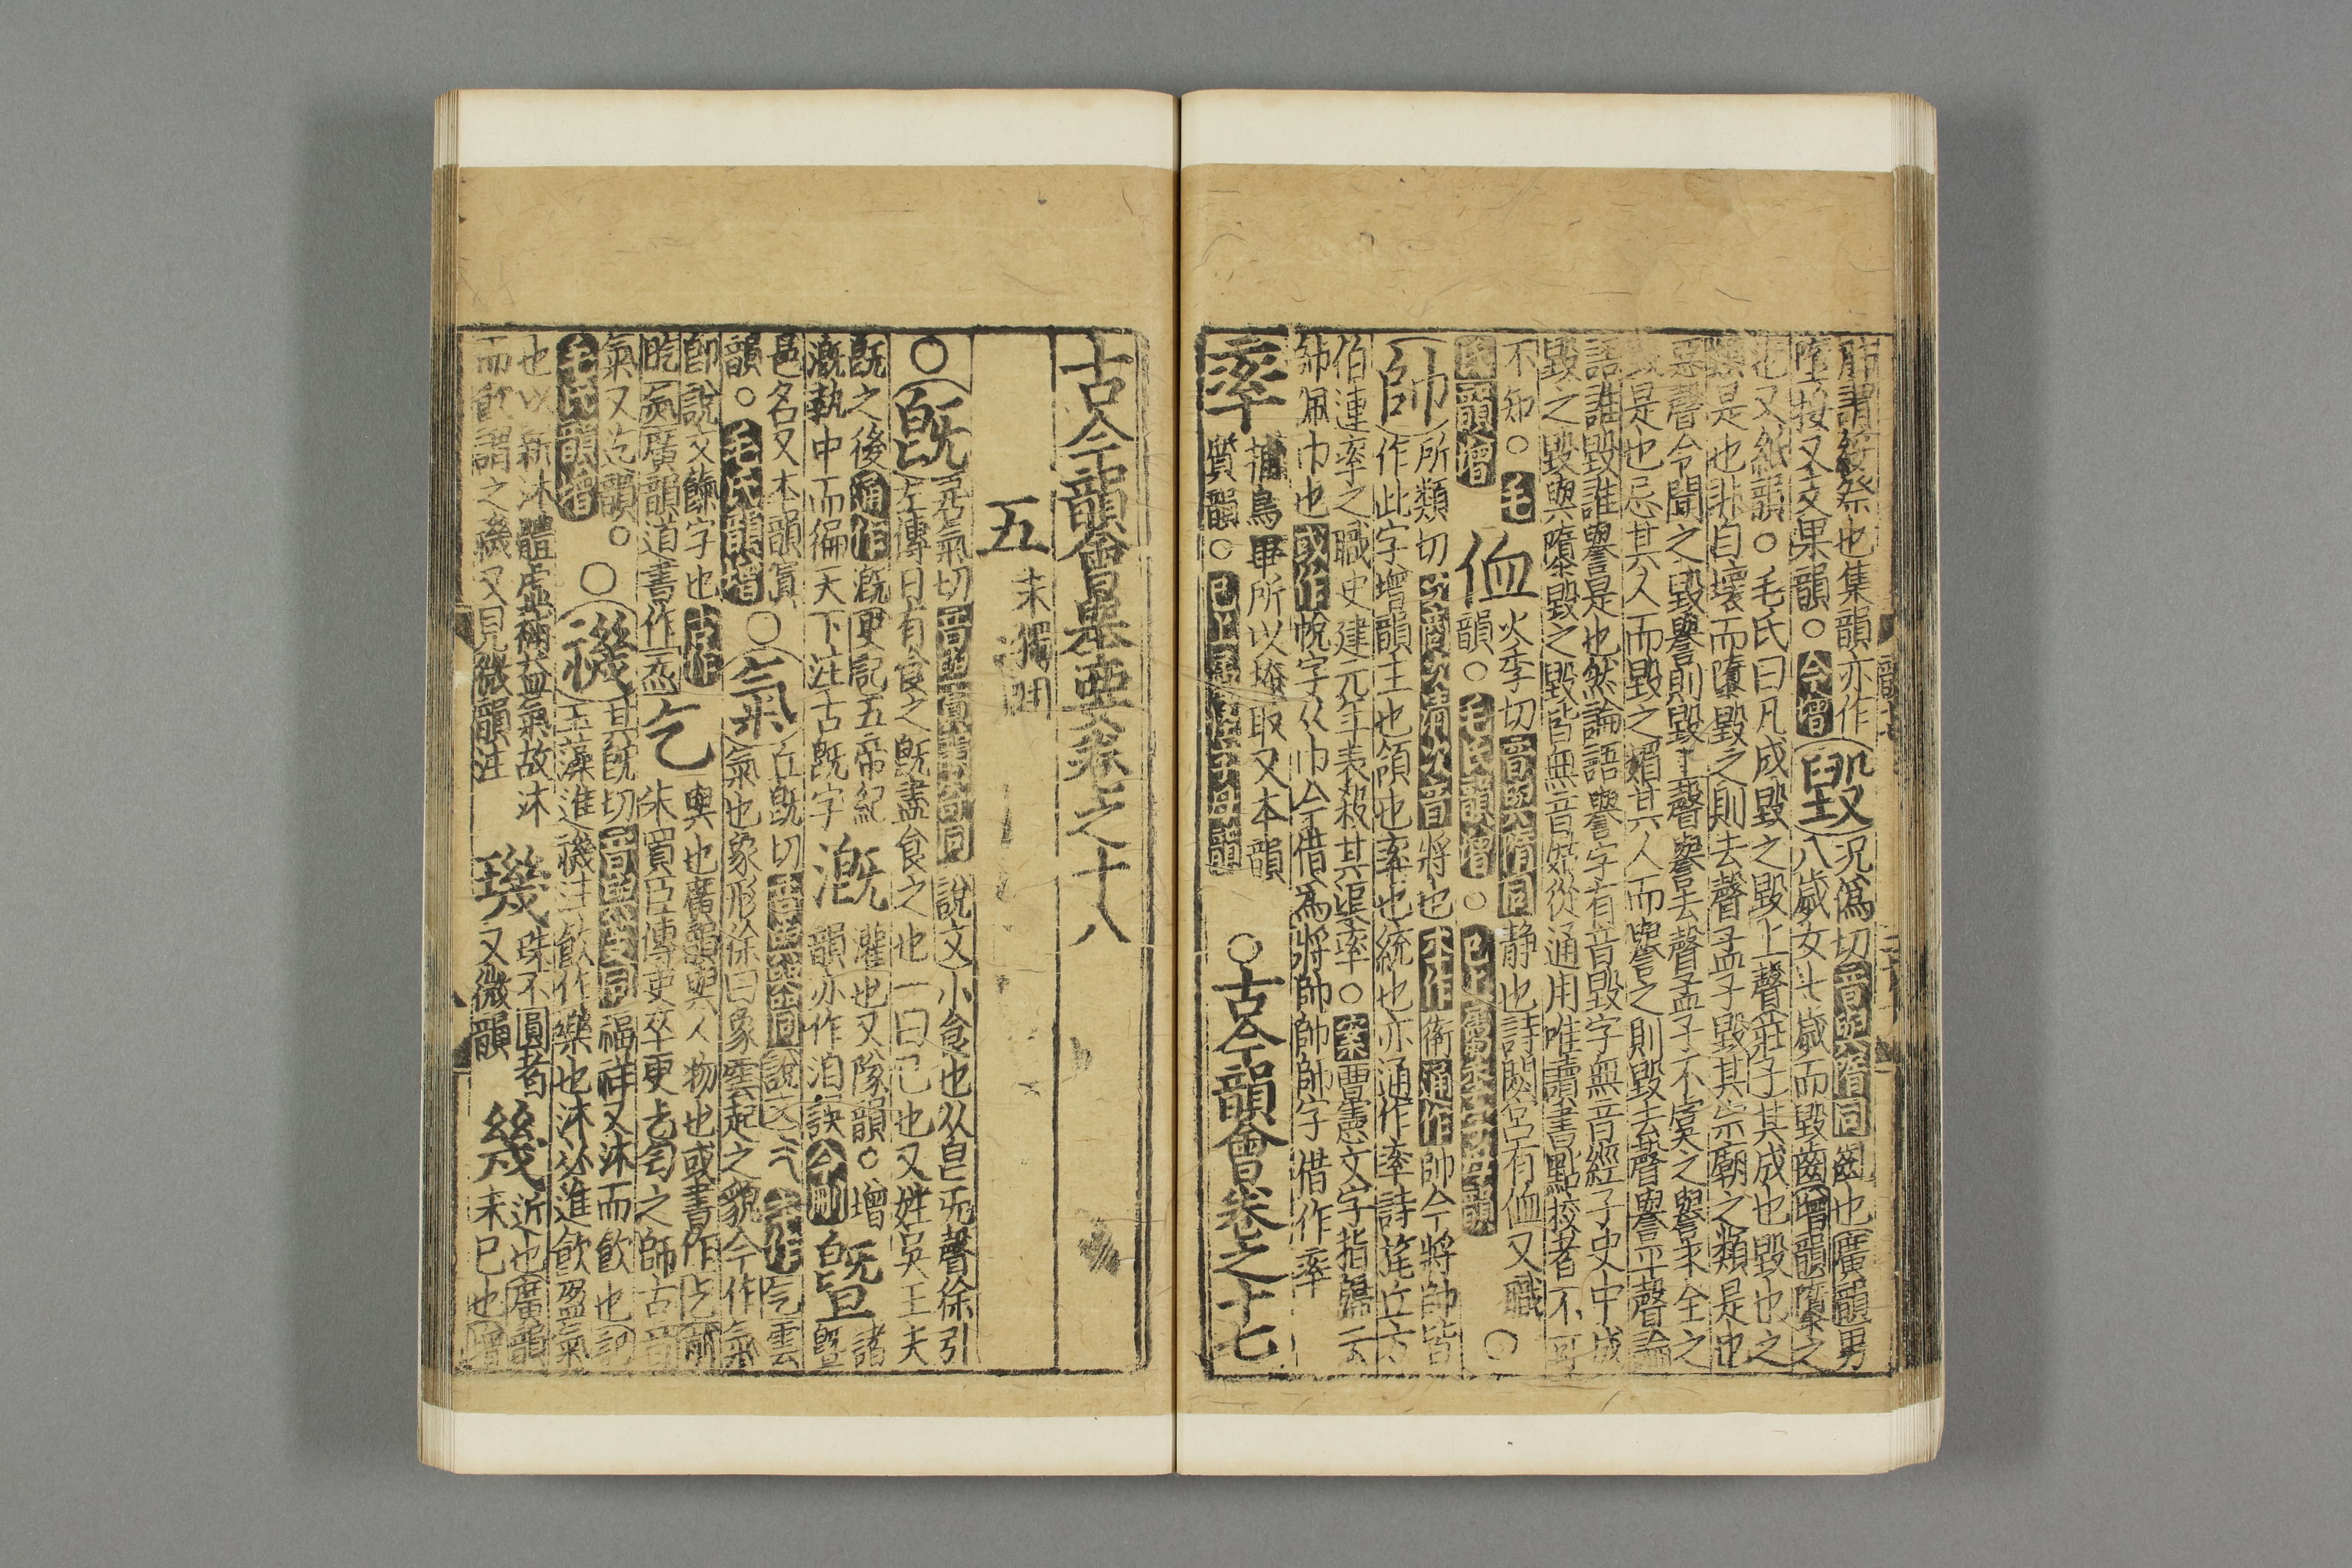 胙謂綏祭也集韻亦作
墮挼又支果韻○今增
毀
況爲切音與隋同齒也廣韻男
八歲女七歲而毀齒增韻隳之
也又紙韻○毛氏曰凡成毀之毀上聲莊子其成也毀也之
類是也非自壞而隳毀之則去聲孟子毀其宗廟之類是也
惡聲令聞之毀譽則毀上聲譽去聲孟子不虞之譽求全之
毀是也忌其人而毀之媢其人而譽之則毀去聲譽平聲論
語誰毀誰譽是也然論語譽字有音毀字無音經子史中成
毀之毀與隳毀之毀皆無音媒從通用唯讀書點挍者不可
不知○毛
氏韻增
侐
火季切音與隋同靜也詩閟宮有侐又職
韻○毛氏韻增○已上屬季字母韻
○
帥
所類切音將也本作衛通作帥今將帥皆
作此字增韻主也領也率也統也亦通作率詩旄丘方
伯連率之職史建元年表殺其渠率○案賈憲文字指歸云
帥佩巾也或作帨字从巾今借爲將帥帥字借作率
率
捕鳥畢所以掩取又本韻
質韻○已上屬字母韻
○古今韻會卷之十七
古今韻會舉要卷之十八
五
未獨用
○旣
居氣切音與寘韻同說文小食也从皀旡聲徐引
左傳日有食之旣盡食之也一曰已也又姓吳王夫
旣之後通作漑史記五帝紀
漑執中而徧天下注古旣字
漑
灌也又隊韻○增
韻亦作洎誤今刪
曁
諸
曁
邑名又本韻寘
韻○毛氏韻增
○氣
丘旣切音與器同說文气本作气雲
氣也象形徐曰象雲起之貌今作氣
卽說文餼字也古作
䀘炁廣韻道書作炁
乞
與也廣韻與人物也或書作乞前
朱買臣傳吏卒更乞匄之師古音
氣又迄韻○
毛氏韻增
○禨
其旣切音與同福祥又沐而飮也記
玉藻進禨注飮作樂也沐必進飮盈氣
也以新沐體虛補益氣故沐
而飮謂之禨又見微韻注
璣
珠不圓者
又微韻
幾
近也廣韻
未已也增